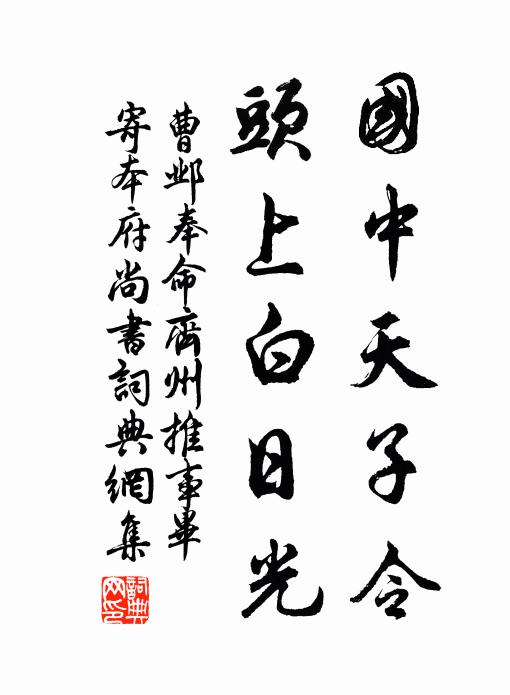 國中天子令
頭上白日光
曹邺奉命齊州推事畢
寄本府尚書詞典網集
詞典网印